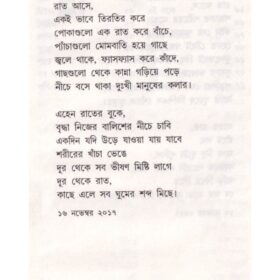 রাত আসে,
একই ভাবে তিরতির করে
পোকাগুলো এক রাত করে বাঁচে,
প্যাঁচাগুলো মোমবাতি হয়ে গাছে
জ্বলে থাকে, ফ্যাসফ্যাস করে কাঁদে,
গাছগুলো থেকে কান্না গড়িয়ে পড়ে
নীচে বসে থাকা দুঃখী মানুষের কলার।
এহেন রাতের বুকে,
বৃদ্ধা নিজের বালিশের নীচে চাবি
একদিন যদি উড়ে যাওয়া যায় যাবে
শরীরের খাঁচা ভেঙে
দূর থেকে সব ভীষণ মিষ্টি লাগে
দূর থেকে রাত,
কাছে এলে সব ঘুমের শব্দ মিছে।
১৬ নভেম্বর ২০১৭